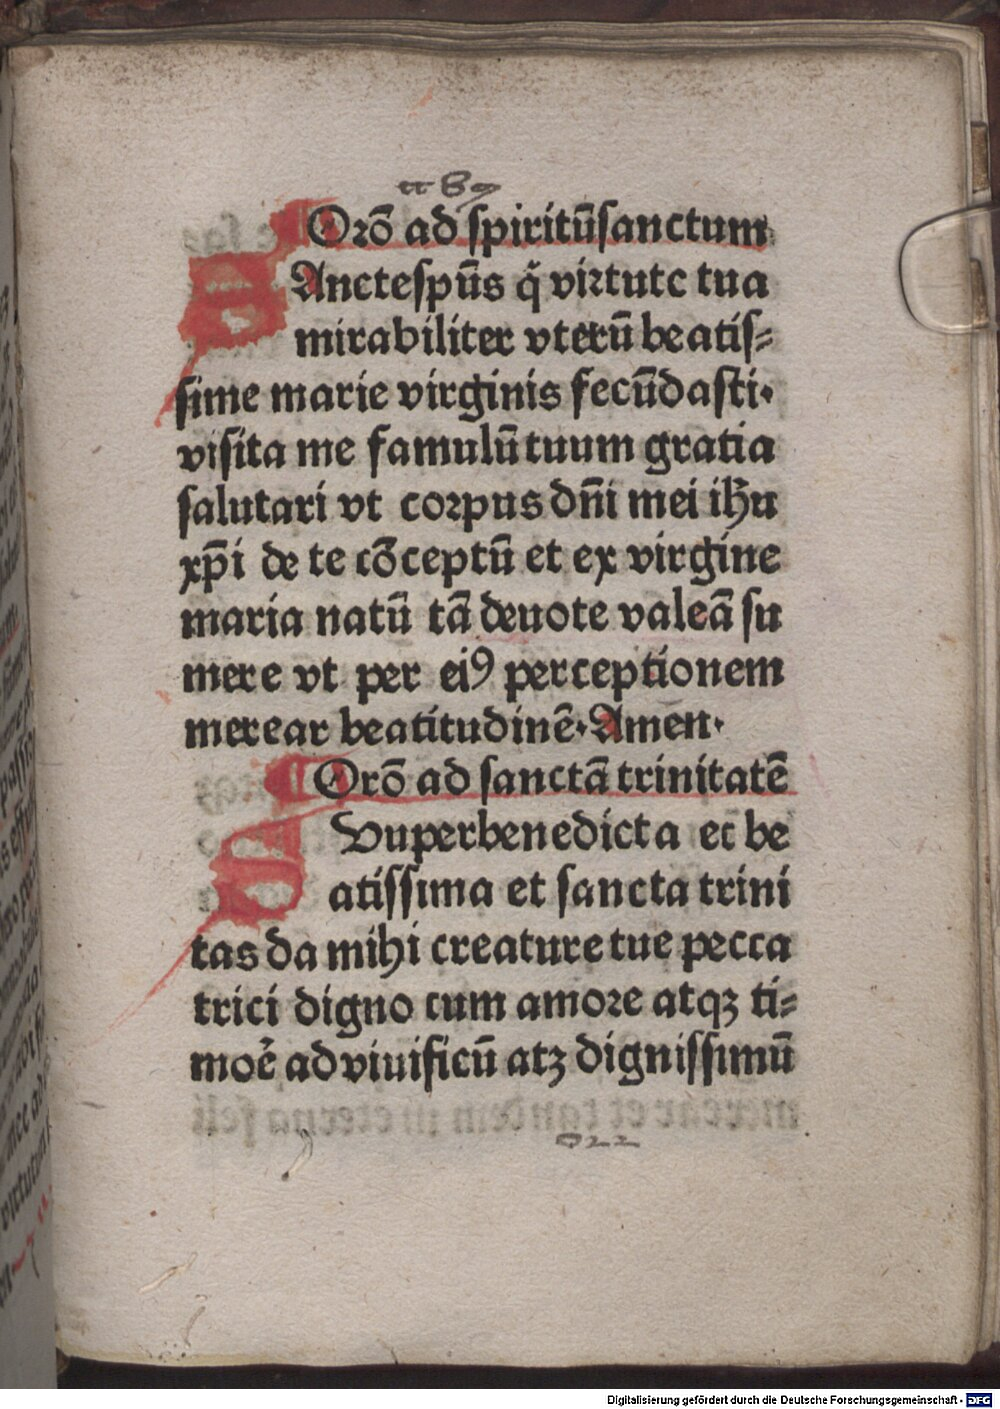 Orō ad spiritūsanctum
SAnctespūs q̄ virtute tua
mirabiliter vterū beatis⸗
sime marie virginis fecūdasti·
visita me famulū tuum gratia
salutari vt corpus dn̄i mei ihu
xp̄i de te cōceptū et ex virgine
maria natū tā deuote valeā su
mere vt per eiꝯ perceptionem
merear beatitudinē·Amen·
Orō ad sanctā trinitatē
Uuperbenedicta et be
atissima et sancta trini
tas da mihi creature tue pecca
trici digno cum amore atqꝫ ti⸗
moē ad viuificū atꝫ dignissimū
Digitalisierung gefördert durch die Deutsche Forschungsgemeinschaft - DFG